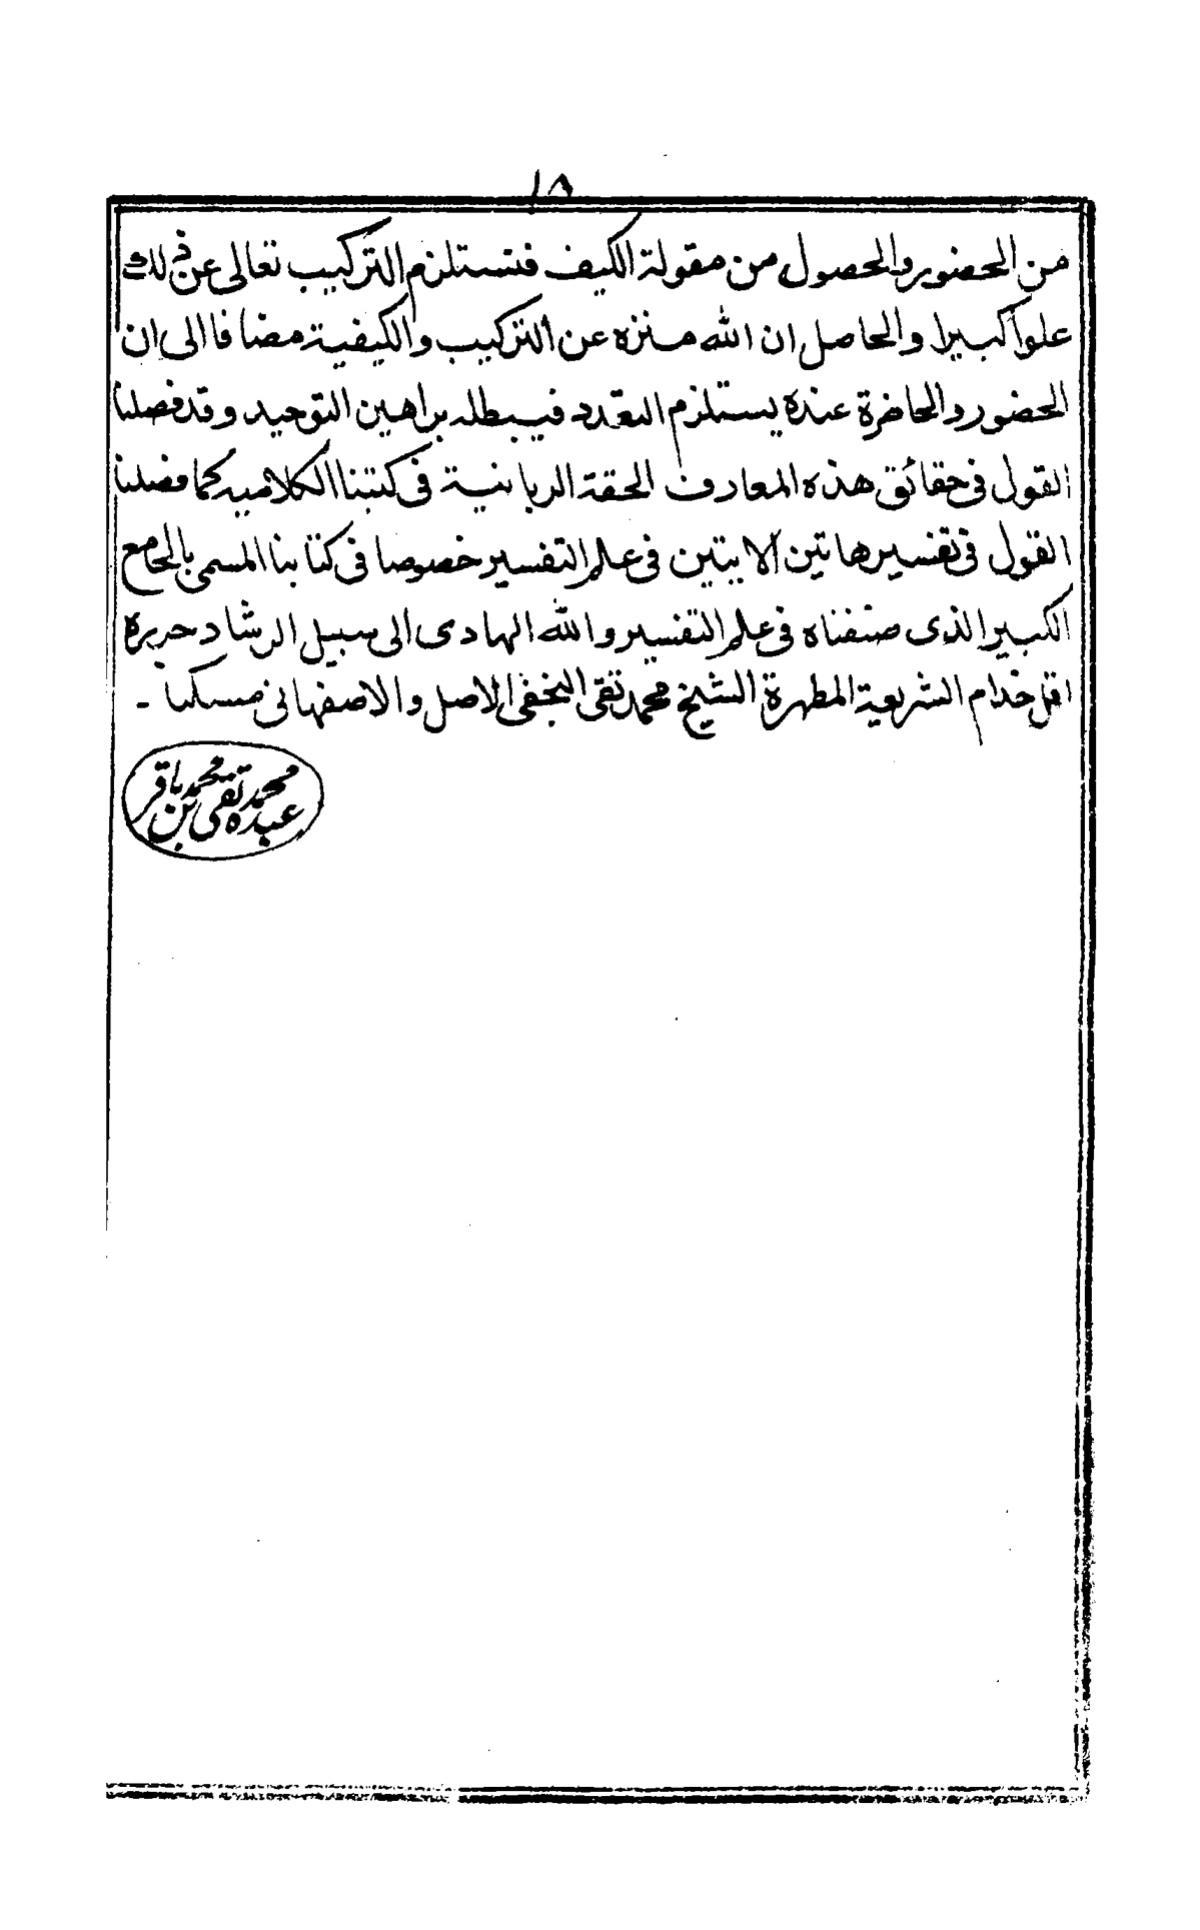 ١٨
من الحضور والحصول من مقولة الكيف فتستلزم التركيب تعالى عن ذلك
علوا كبيرا والحاصل ان الله منزه عن التركيب والكيفية مضافا الى ان
الحضور والحاضرة عنده يستلزم التعدد فيبطله براهين التوحيد وقد فصلنا
القول فى حقائق هذه المعارف الحقة الربانية فى كتبنا الكلامية كما فصلنا
القول فى تفسير هاتين الايتين فى علم التفسير خصوصا فى كتابنا المسمى بالجامع
الكبير الذى صنفناه فى علم التفسير والله الهادى الى سبيل الرشاد حرره
اقل خدام الشريعة المطهرة الشيخ محمد تقى النجفى الاصل والاصفهانى مسكنا -
محمد باقر
عبده محمد تقى بن